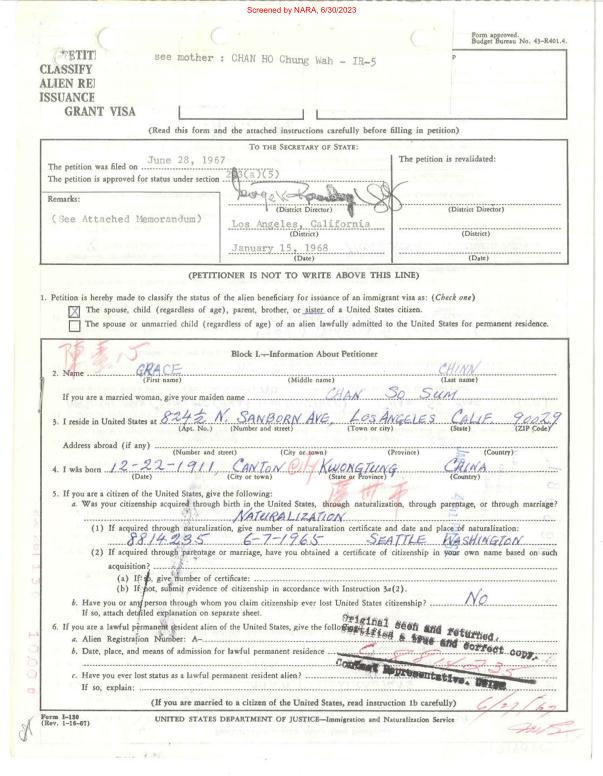 Screened by NARA, 6/30/2023
Form approved.
Budget Bureau No. 43-R401.4.
see mother : CHAN HO Chung Wah - IR-5
CLASSIFY
ISSUANCE
GRANT VISA
(Read this form and the attached instructions carefully before filling in petition)
TO THE SECRETARY OF STATE:
The petition was filed on June 28, 1967
The petition is approved for status under section 203(a)(5)
The petition is revalidated:
Remarks:
(See Attached Memorandum)
(District Director)
(District Director)
Los Angeles, California
(District)
(District)
January 15, 1968
(Date)
(Date)
(PETITIONER IS NOT TO WRITE ABOVE THIS LINE)
1. Petition is hereby made to classify the status of the alien beneficiary for issuance of an immigrant visa as: (Check one)
X The spouse, child (regardless of age), parent, brother, or sister of a United States citizen.
The spouse or unmarried child (regardless of age) of an alien lawfully admitted to the United States for permanent residence.
Block I.—Information About Petitioner
2. Name GRACE CHINN
(First name) (Middle name) (Last name)
If you are a married woman, give your maiden name CHAN SO SUM
3. I reside in United States at 824½ N. SANBORN AVE, LOS ANGELES CALIF 90029
(Apt. No.) (Number and street) (Town or city) (State) (ZIP Code)
Address abroad (if any)
(Number and street) (City or town) (Province) (Country)
4. I was born 12-22-1911, CANTON City KWONGTUNG CHINA
(Date) (City or town) (State or Province) (Country)
5. If you are a citizen of the United States, give the following:
a. Was your citizenship acquired through birth in the United States, through naturalization, through parentage, or through marriage?
NATURALIZATION
(1) If acquired through naturalization, give number of naturalization certificate and date and place of naturalization:
8814235 6-7-1965 SEATTLE WASHINGTON
(2) If acquired through parentage or marriage, have you obtained a certificate of citizenship in your own name based on such
acquisition?
(a) If so, give number of certificate:
(b) If not, submit evidence of citizenship in accordance with Instruction 3a(2).
b. Have you or any person through whom you claim citizenship ever lost United States citizenship? NO
If so, attach detailed explanation on separate sheet.
6. If you are a lawful permanent resident alien of the United States, give the following:
Original seen and returned.
Certified a true and correct copy.
a. Alien Registration Number: A-
b. Date, place, and means of admission for lawful permanent residence
Contact Representative.
c. Have you ever lost status as a lawful permanent resident alien?
If so, explain:
(If you are married to a citizen of the United States, read instruction 1b carefully)
6/27/67
Form I-130
(Rev. 1-16-67)
UNITED STATES DEPARTMENT OF JUSTICE—Immigration and Naturalization Service